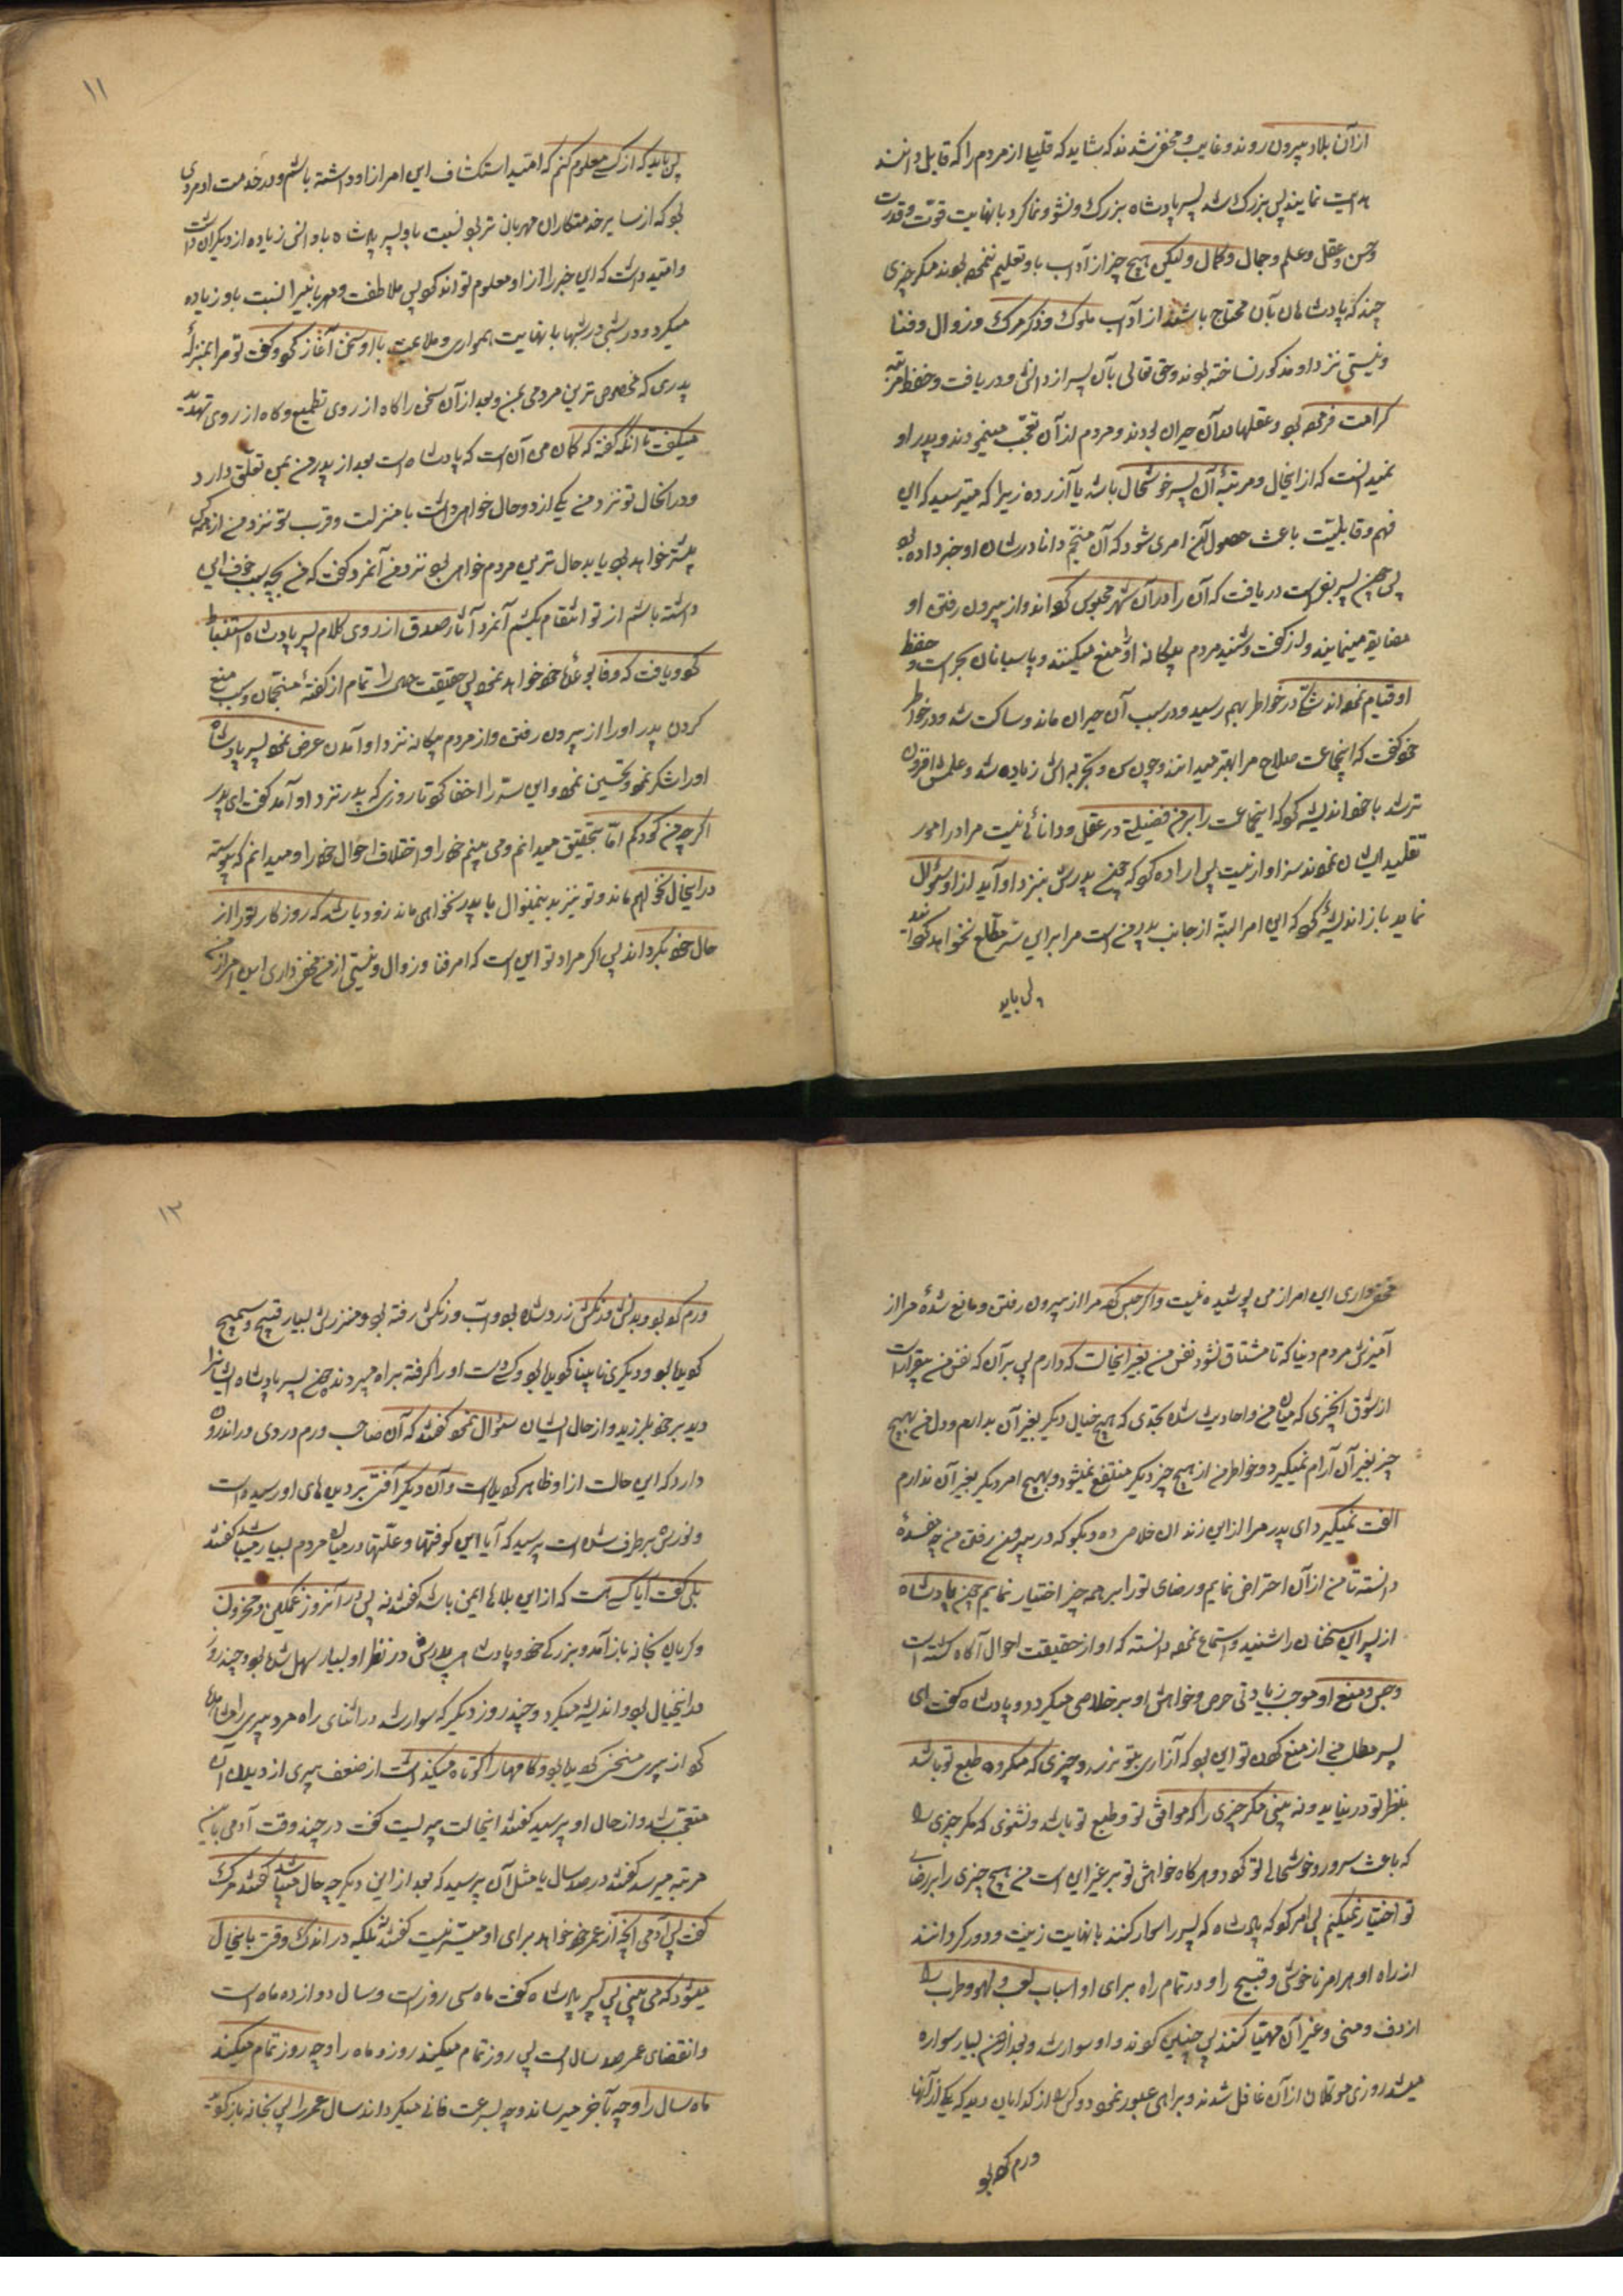 ازآن بلاد بیرون روند و غایب و مخفی شدند که شاید که قلیلی از مردم را که قابل دانند
هدایت نمایند پس بزرک شد پسر پادشاه بزرک و نشو و نما کرد با نهایت قوت و قدرت
و حسن و عقل و علم و جمال و کمال ولیکن هیچ چیز از آداب باو تعلیم ننموده بودند مکر چیزی
چند که پادشاهان بآن محتاج باشند از آداب ملوک و ذکر مرک و زوال و فنا
و نیستی نزد او مذکور نساخته بودند و حق تعالی بآن پسر از دانش و دریافت و حفظ مرتبه
کرامت فرموده بود و عقلها در آن حیران بودند و مردم از آن تعجب مینمودند و پدر او
نمیدانست که از اینحال و مرتبهٔ آن پسر خوشحال باشد یا آزرده زیرا که میترسید که این
فهم و قابلیت باعث حصول آن امری شود که آن منجم دانا در شان او خبر داده بود
پس چون پسر بفراست دریافت که آن را در آن شهر محبوس کرده‌اند و از بیرون رفتن او
مضایقه مینمایند و از کفت و شنید مردم بیکانه او را منع میکنند و پاسبانان بحراست و حفظ
او قیام نموده‌اند شکی در خاطر بهم رسید و در سبب آن حیران ماند و ساکت شد و در خاطر
خود کفت که اینجماعت صلاح مرا بهتر میدانند و چون سن و تجربه اش زیاده شد و علمش افزون
تر شد با خود اندیشه کرد که اینجماعت را بر من فضیلتی در عقل و دانائی نیست مرا در امور
تقلید ایشان نمودن سزاوار نیست پس اراده کرد که چون پدرش بنزد او آید از او سئوال
نماید باز اندیشه کرد که این امر البته از جانب پدر منست مرا بر این سر مطلع نخواهد کردانید
پس باید
۱۱
پس باید که از کسی معلوم کنم که امید استکشاف این امر از او داشته باشم و در خدمت او مردی
بود که از سایر خدمتکاران مهربان تر بود نسبت باو و پسر پادشاه باو انس زیاده از دیکران داشت
و امید داشت که این خبر را از او معلوم تواند کرد پس ملاطفت و مهربانی را نسبت باو زیاده
میکرد و در شبی در شبها با نهایت همواری و ملایمت با او سخن آغاز کرد و کفت تو مرا بمنزلهٔ
پدری که مخصوص ترین مردمی بمن و بعد از آن سخن را کاه از روی تطمیع و کاه از روی تهدید
میکفت تا آنکه کفت که کمان من آن است که پادشاهی بعد از پدر من بمن تعلق دارد
و در آنحال تو نزد من یکی از دو حال خواهی داشت یا منزلت و قرب تو نزد من از همه کس
بیشتر خواهد بود یا بدحال ترین مردم خواهی بود نزد من آنمرد کفت که من بچه سبب خوف این
داشته باشم از تو انتقام بکشم آنمرد آثار صدق از روی کلام پسر پادشاه استنباط
کرد و یافت که وفا بوعدهای خود خواهد نمود پس حقیقت حال را تمام از کفتهٔ منجمان و سبب منع
کردن پدر او را از بیرون رفتن و از مردم بیکانه نزد او آمدن عرض نمود پسر پادشاه
او را شکر نمود و تحسین نمود و این سر را اخفا کرد تا روزی که پدر نزد او آمد کفت ای پدر
اکرچه من کودکم اما بتحقیق میدانم و می بینم خود را و اختلاف احوال خود را و میدانم که پیوسته
در اینحال نخواهم ماند و تو نیز بدینمنوال پایدار نخواهی ماند زود باشد که روزکار تو را از
حال خود بکرداند پس اکر مراد تو این است که امر فنا و زوال و نیستی از من مخفی داری این امر از من
مخفی داری این امر از من پوشیده نیست و اکر حبس کرده مرا از بیرون رفتن و مانع شدهٔ مرا از
آمیزش مردم دنیا که تا مشتاق نشود نفس من بغیر اینحالت که دارم پس بدان که نفس من بیقرار است
از شوق آنچیزی که میان من و او حادیث شده بحدی که هیچ خیال دیکر بغیر آن ندارم و دل من بهیچ
چیز بغیر آن آرام نمیکیرد و خاطر من از هیچ چیز دیکر منتفع نمیشود و بهیچ امر دیکر بغیر آن ندارم
الفت نمیکیرد ای پدر مرا از این زندان خلاص ده و بکو که در بیرون رفتن من چه مفسدهٔ
دانسته تا من از آن احتراض نمایم و رضای تو را بر همه چیز اختیار نمایم چون پادشاه
از پسر این سخنان را شنید و استماع نمود دانست که او از حقیقت احوال آکاه کشته است
و حبس و منع او موجب زیادتی حرص و خواهش او بر خلاصی میکردد پادشاه کفت ای
پسر مطلب من از منع کردن تو این بود که آزاری بتو نرسد و چیزی که مکروه طبع تو باشد
بنظر تو در نیاید و نه بینی مکر چیزی را که موافق تو و طبع تو باشد و نشنوی مکر چیزی را
که باعث سرور و خوشحالی تو کردد و هرکاه خواهش تو بر غیر این است من هیچ چیزی را بر رضای
تو اختیار نمیکنم پس امر کرد که پادشاه که پسر را سوار کنند با نهایت زینت و دور کردانند
از راه او هر امر ناخوش و قبیح را و در تمام راه برای او اسباب لعب و لهو و طرب را
از دف و منی و غیر آن مهیا کنند پس چنین کردند و او سوار شد و بعد از آنهم بسیار سواره
میشد روزی موکلان از آن غافل شدند و براهی عبور نمود دو کس را از کدایان دید که یکی از آنها
ورم کرده بود
۱۲
ورم کرده بود و بدنش و رنکش زرد شده بود و آب و رنکش رفته بود و منظرش بسیار قبیح و سمیج
کردیده بود و دیکری نابینا کردیده بود و کسی دست او را کرفته براه میبرد چون پسر پادشاه ایشانرا
دید بر خود بلرزید و از حال ایشان سئوال نمود کفتند که آن صاحب ورم دردی در اندرون
دارد که این حالت از او ظاهر کردیده است و آن دیکر آفتی بر دیده‌های او رسیده است
و نورش برطرف شده است پرسید که آیا این کوفتها و علتها در میان مردم بسیار میباشد کفتند
بلی کفت آیا کسی هست که از این بلاها ایمن باشد کفتند نه پس در آنروز غمکین و محزون
و کریان بخانه بازآمد و بزرکی خود و پادشاهی پدرش در نظر او بسیار سهل شده بود و چند روز
در اینخیال بود و اندیشه میکرد و چند روز دیکر که سوار شد در اثنای راه مرد پیری را مشاهده
کرد از پیری منحنی کردیده بود و کامها را کوتاه میکذاشت از ضعف پیری از دیدن آن
متعجب شد و از حال او پرسید کفتند اینحالت پیریست کفت در چند وقت آدمی باین
مرتبه میرسد کفتند در صد سال یا مثل آن پرسید که بعد از این دیکر چه حال میباشد کفتند مرک
کفت پس آدمی آنچه از عمر خود خواهد برای او میسر نیست کفتند نه بلکه در اندک وقتی باینحال
میشود که می بینی پس پسر پادشاه کفت ماه سی روز است و سال دوازده ماه است
و انقضای عمر صد سال است پس روز تمام میکند روز و ماه را و چه زود تمام میکند
ماه سال را و چه بآخر میرساند و چه بسرعت فانی میکرداند سال عمر را پس بخانه بازکردید